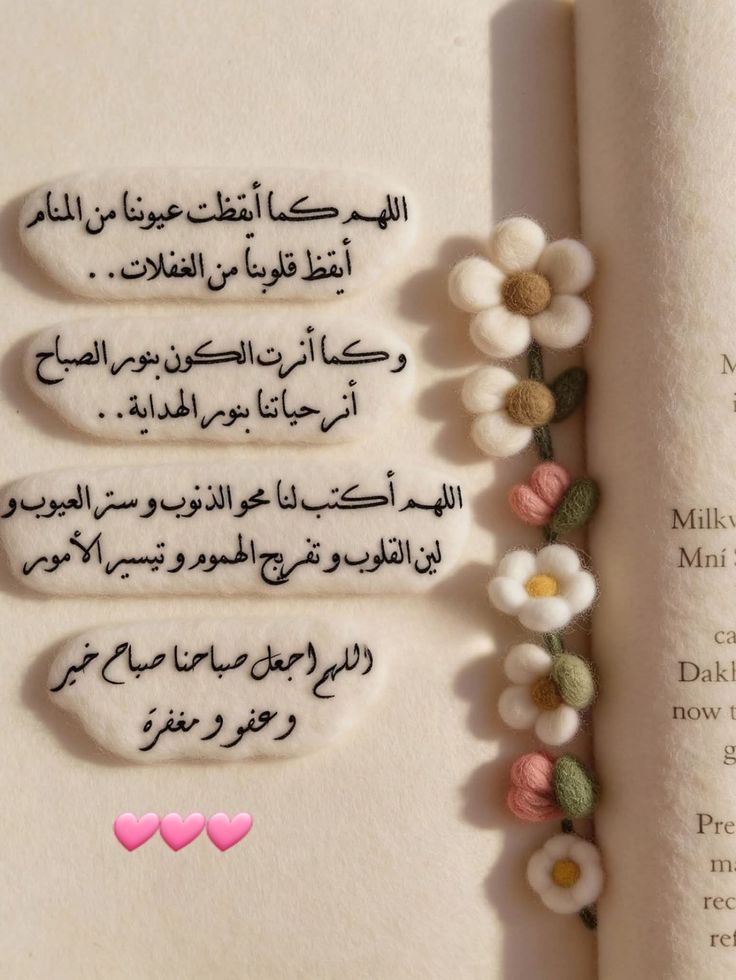 اللهم كما أيقظت عيوننا من المنام
أيقظ قلوبنا من الغفلات . .
وكما أنرت الكون بنور الصباح
أنر حياتنا بنور الهداية . .
اللهم أكتب لنا محو الذنوب و ستر العيوب و
لين القلوب و تفريج الهموم و تيسير الأمور
اللهم اجعل صباحنا صباح خير
و عفو و مغفرة
Mní
now